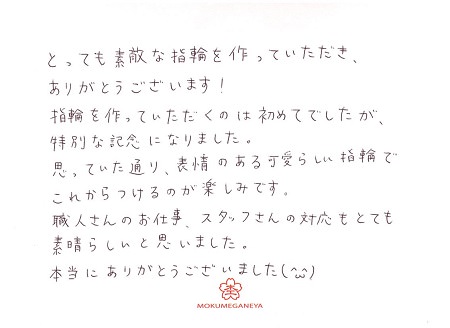 とっても素敵な指輪を作っていただき、
ありがとうございます！
指輪を作っていただくのは初めてでしたが、
特別な記念になりました。
思っていた通り、表情のある可愛らしい指輪で
これからつけるのが楽しみです。
職人さんのお仕事、スタッフさんの対応もとても
素晴らしいと思いました。
本当にありがとうございました(^ω^)
MOKUMEGANEYA